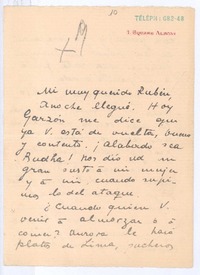 10
TÉLÉPH: 682-48
+9
Mi muy querido Rubén,
Anoche llegué. Hoy
Garzón me dice que
ya V. está de vuelta, bueno
y contento. ¡Alabado sea
Budha! Nos dio un
gran susto á mi mujer
y á mí cuando supi-
mos lo del ataque.
¿Cuando quiere V.
venir á almorzar ó á
comer? Aurora le hará
platos de Lima,